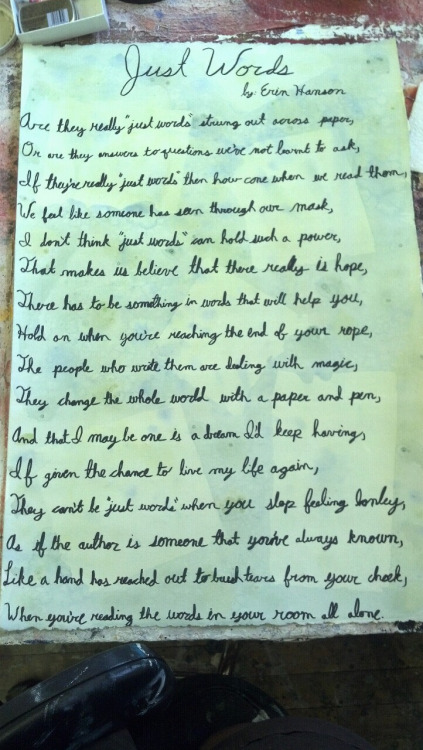 Just Words
by: Erin Hanson
Are they really "just words" strung out across paper,
Or are they answers to questions we've not learnt to ask,
If they're really "just words" then how come when we read them,
We feel like someone has seen through our mask,
I don't think "just words" can hold such a power,
That makes us believe that there really is hope,
There has to be something in words that will help you,
Hold on when you're reaching the end of your rope,
The people who write them are dealing with magic,
They change the whole world with a paper and pen,
And that I may be one is a dream I'd keep having,
If given the chance to live my life again,
They can't be "just words" when you stop feeling lonley,
As if the author is someone that you've always known,
Like a hand has reached out to brush tears from your cheek,
When you're reading the words in your room all alone.